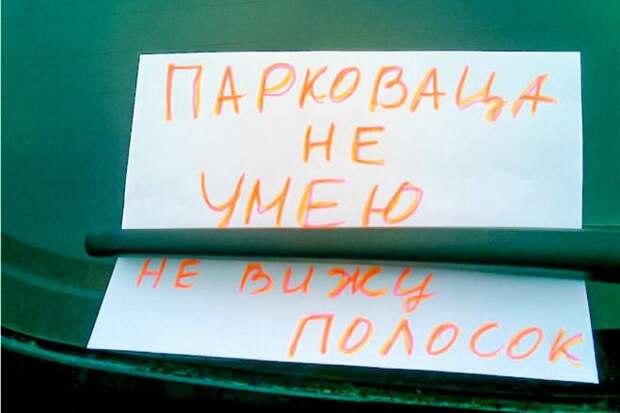 ПАРКОВАЦА
НЕ
УМЕЮ
НЕ ВИЖУ
ПОЛОСОК